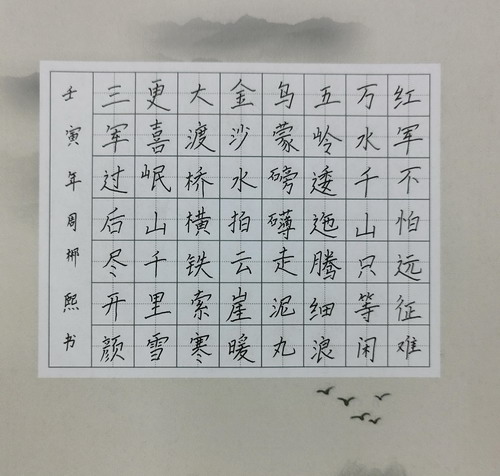 红军不怕远征难
万水千山只等闲
五岭逶迤腾细浪
乌蒙磅礴走泥丸
金沙水拍云崖暖
大渡桥横铁索寒
更喜岷山千里雪
三军过后尽开颜
壬寅年周梛熙书